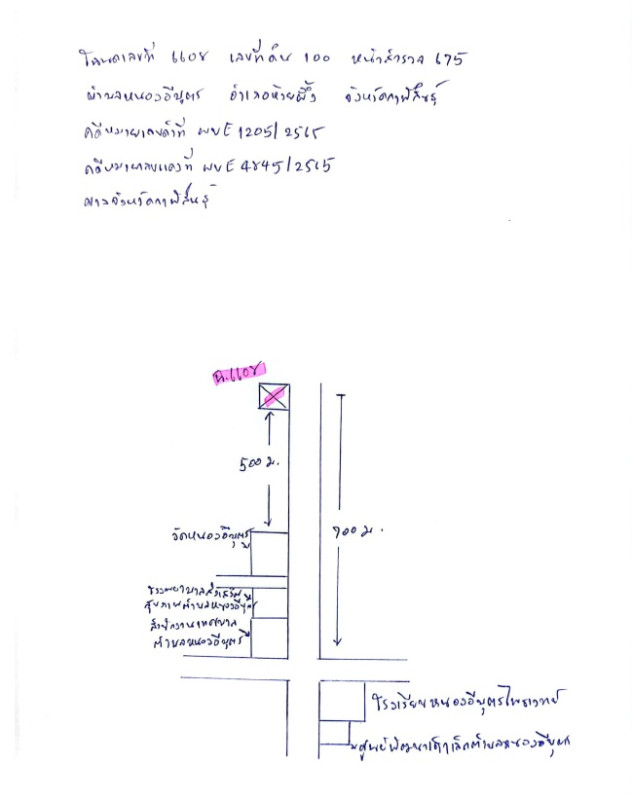 โฉนดเลขที่ 6608 เลขที่ดิน 100 หน้าสำรวจ 675
ตำบลหนองอีบุตร อำเภอห้วยผึ้ง จังหวัดกาฬสินธุ์
คดีหมายเลขดำที่ ผบE 1205/2565
คดีหมายเลขแดงที่ ผบE 4845/2565
ศาลจังหวัดกาฬสินธุ์
ฉ.6608
500 ม.
วัดหนองอีบุตร
700 ม.
โรงพยาบาลส่งเสริม
สุขภาพตำบลหนองอีบุตร
สำนักงานเทศบาล
ตำบลหนองอีบุตร
โรงเรียนหนองอีบุตร
ศูนย์พัฒนาเด็กเล็กตำบลหนองอีบุตร